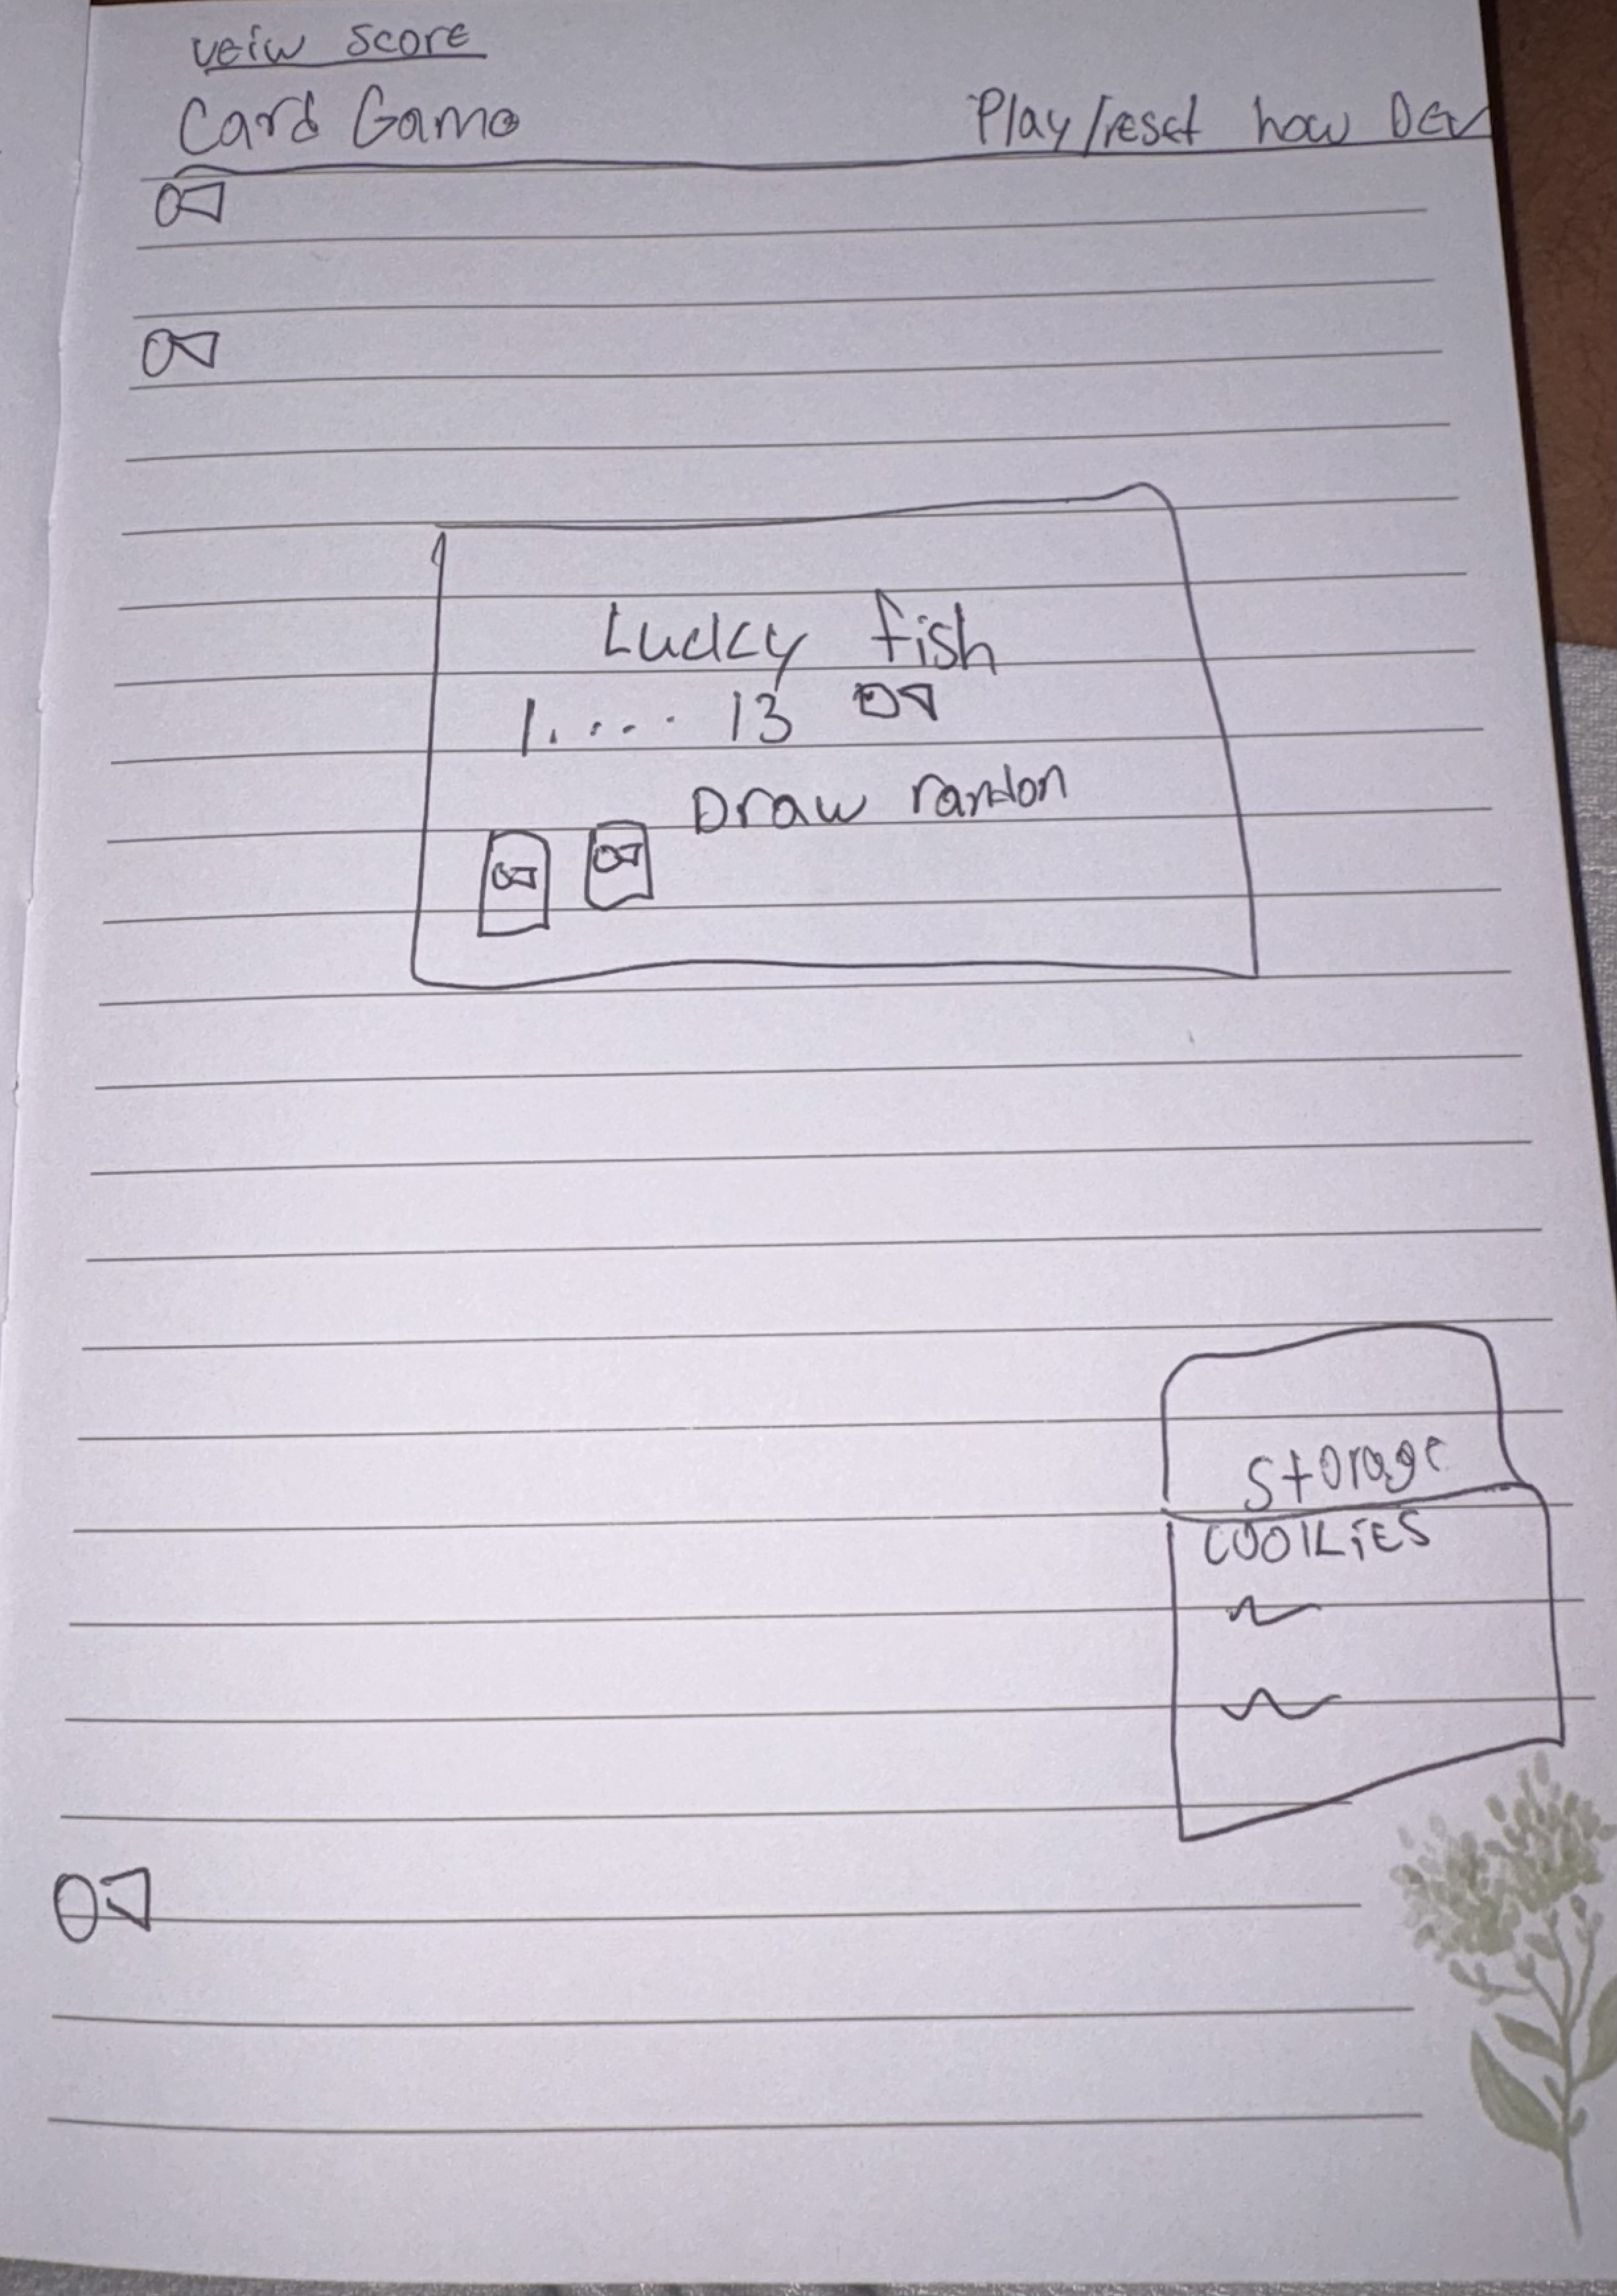 veiw score
Card Game
Play/reset how DEV
Lucky fish
1.... 13
Draw random
Storage
COOKiES